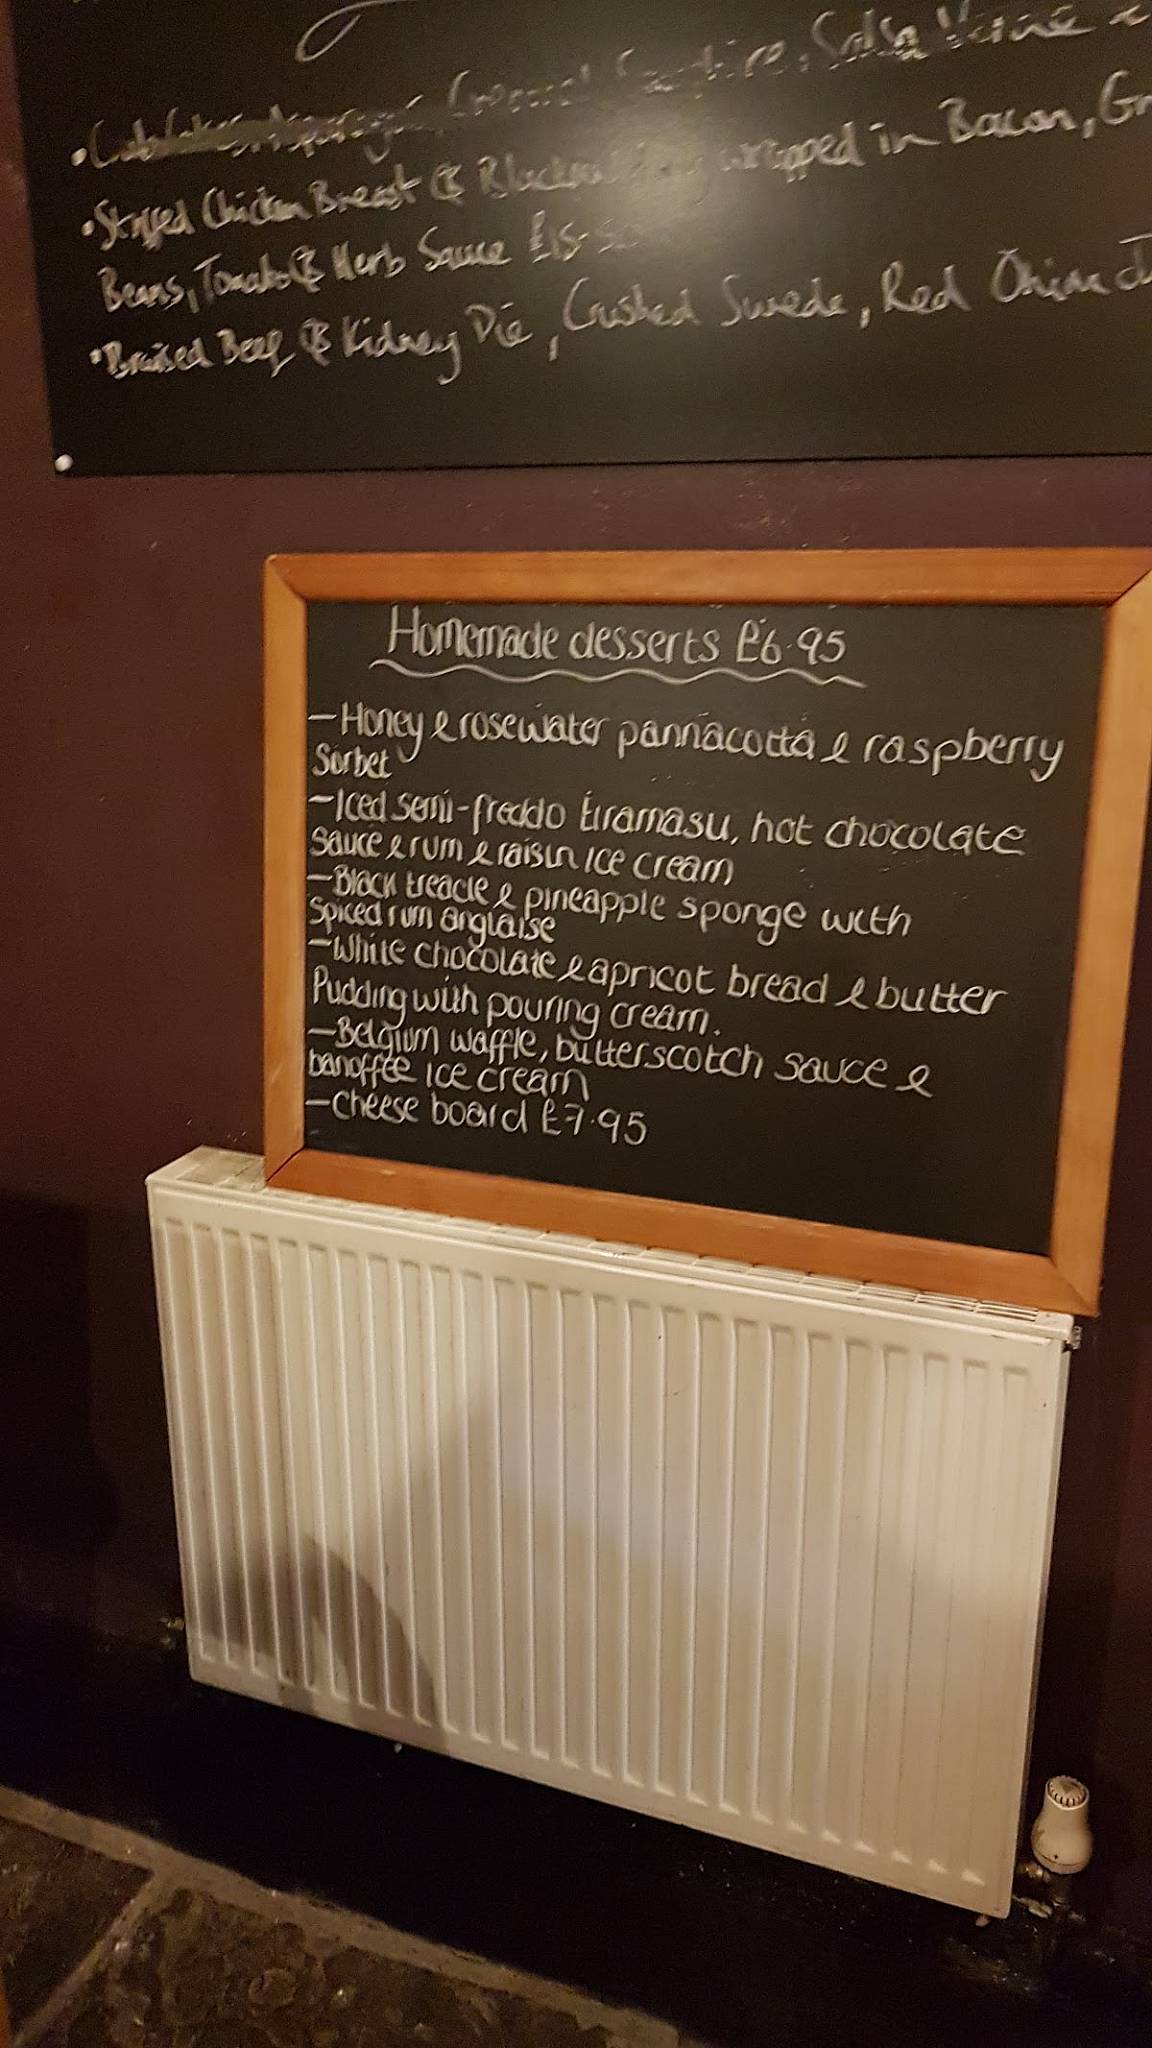 Salsa
•Stuffed Chicken Breast & wrapped in Bacon,
Beans, Tomato & Herb Sauce
•Braised Beef & Kidney Pie, Crushed Swede, Red Onion
Homemade desserts £6.95
-Honey & rosewater pannacotta & raspberry
Sorbet
-Iced semi-freddo tiramasu, hot chocolate
Sauce & rum & raisin ice cream
-Black treacle & pineapple sponge with
Spiced rum anglaise
-White chocolate & apricot bread & butter
Pudding with pouring cream.
-Belgium waffle, butterscotch sauce &
banoffee ice cream
-cheese board £7.95